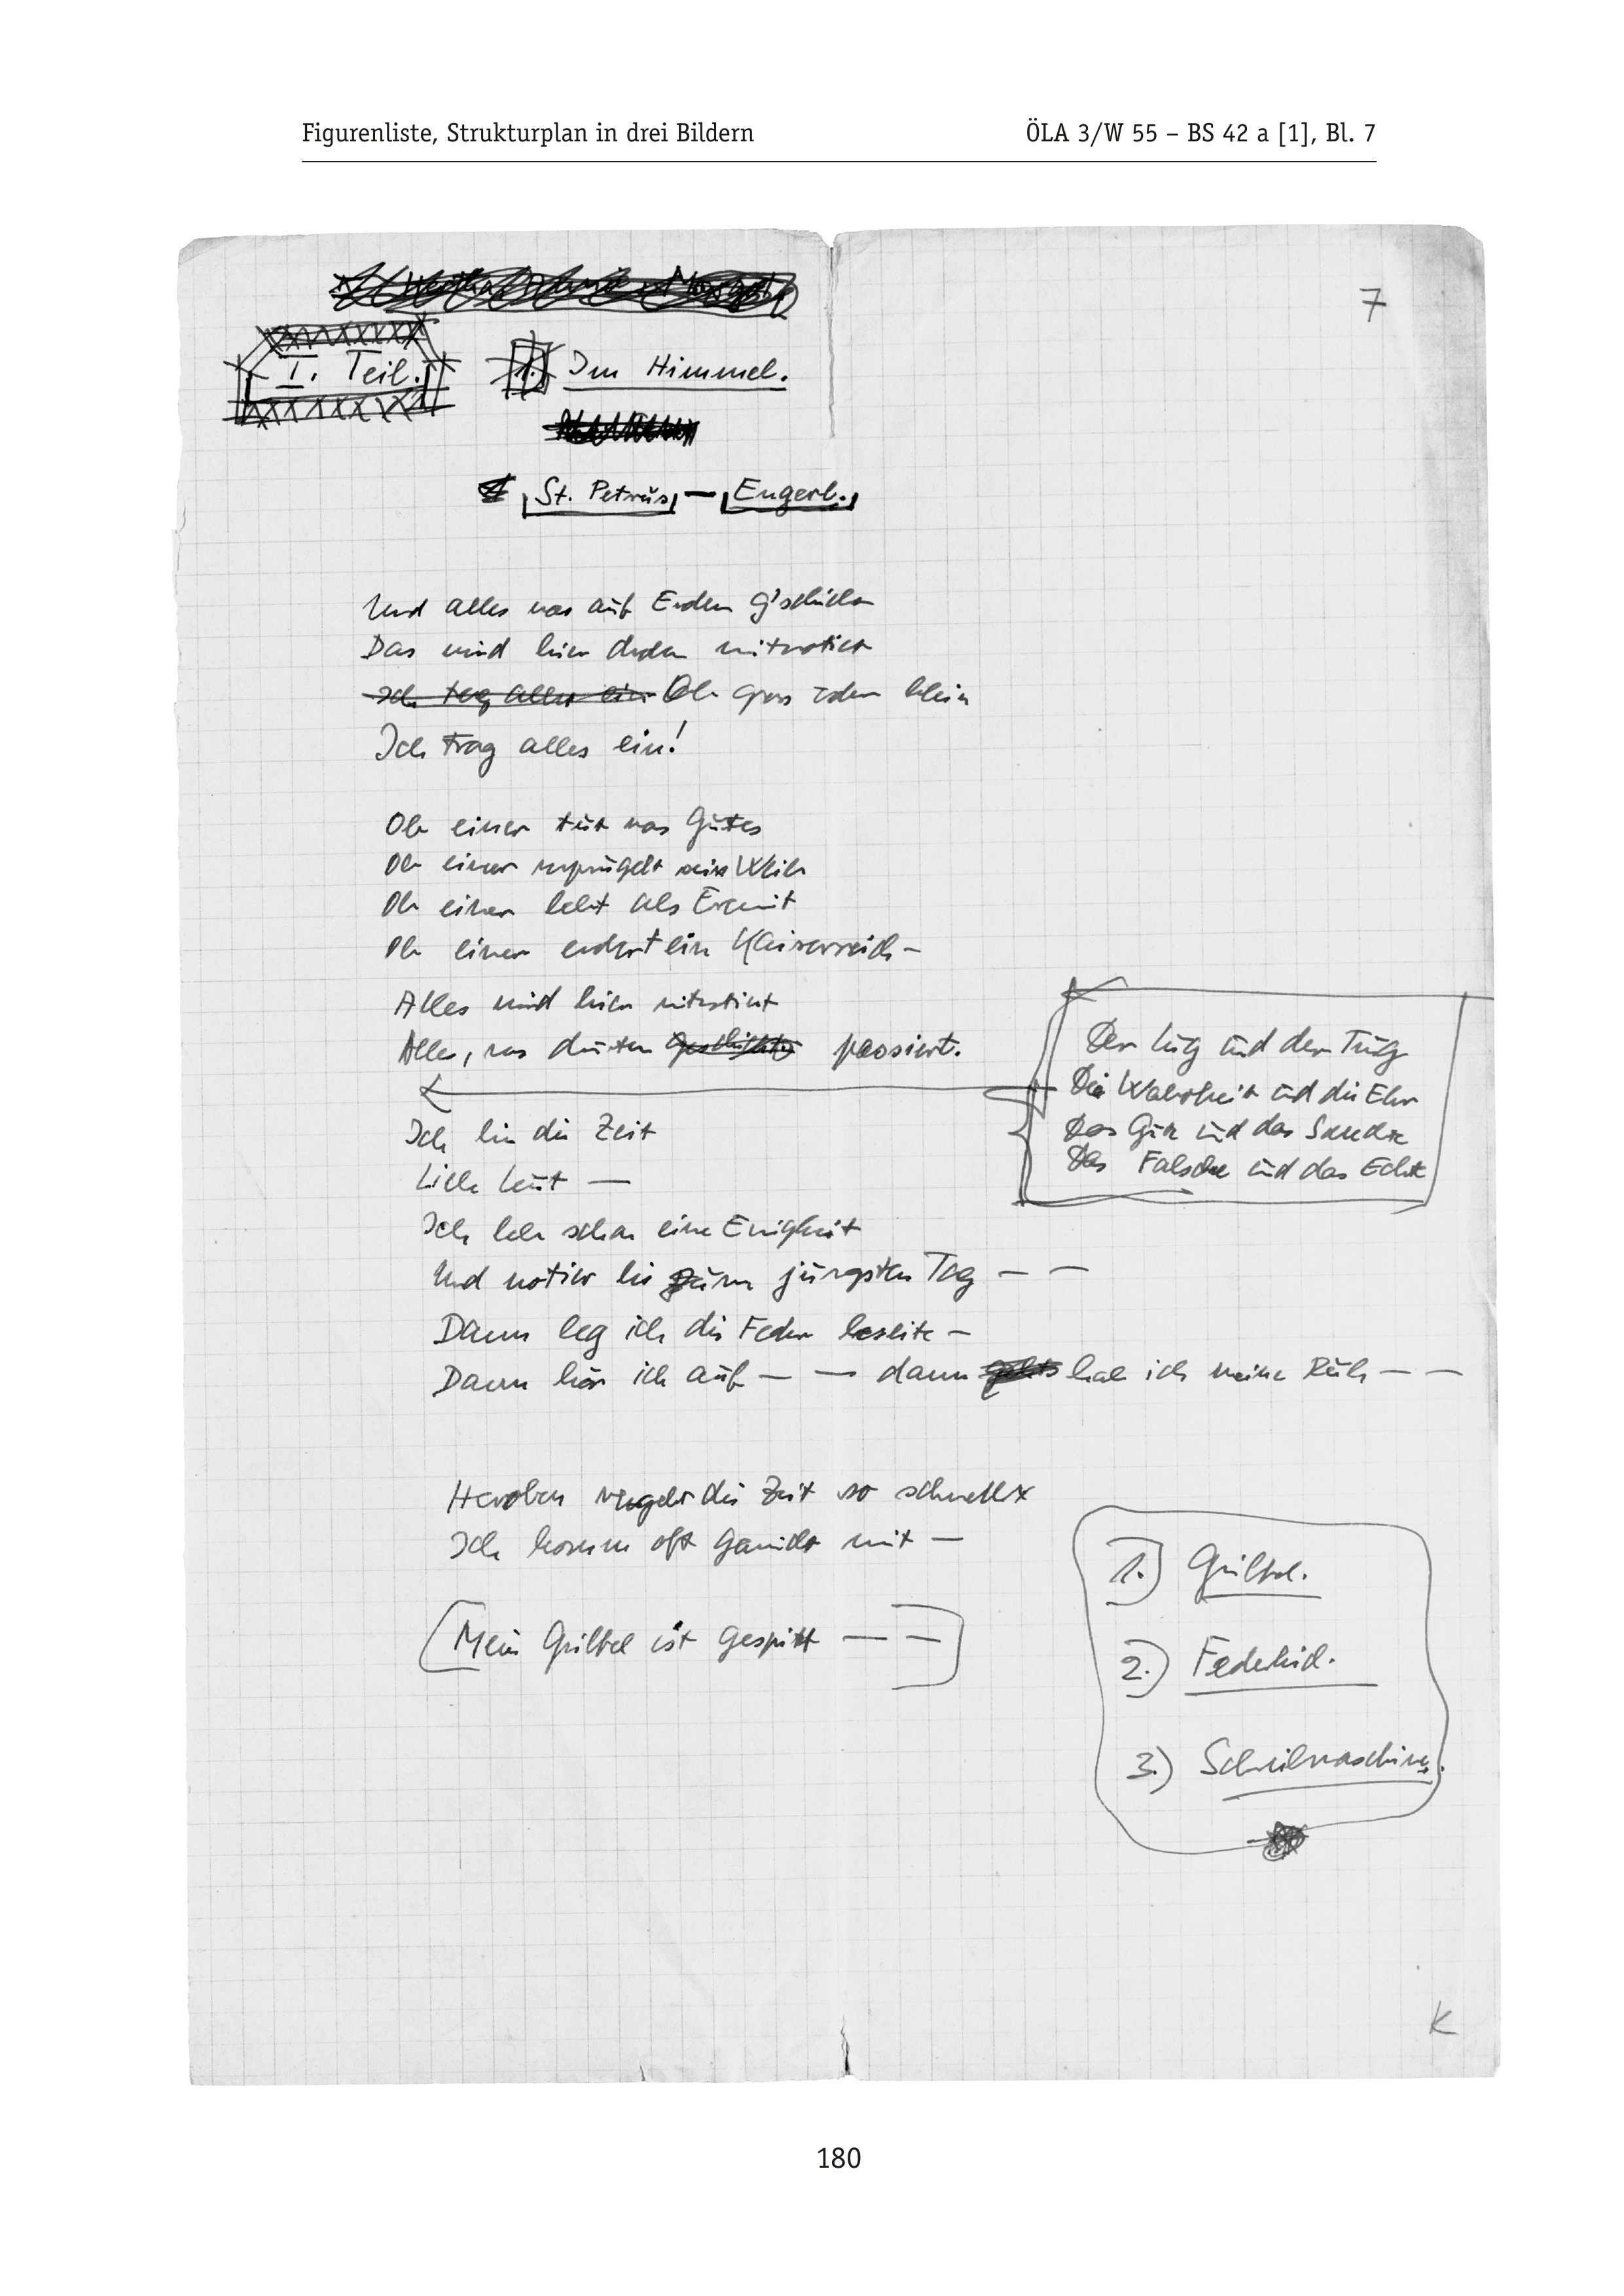 Figurenliste, Strukturplan in drei Bildern
ÖLA 3/W 55 – BS 42 a [1], Bl. 7
7
I. Teil.
1. Im Himmel.
St. Petrus – Engerl.
Und alles was auf Erden g'schicht
Das wird hier droben mitnotiert
Ich trag alles ein Ob gross oder klein
Ich trag alles ein!
Ob einer tut was Gutes
Ob einer verprügelt sein Weib
Ob einer lebt als Eremit
Ob einer erobert ein Kaiserreich –
Alles wird hier mitnotiert
Alles, was drunten passiert.
Der Lug und der Trug
Die Wahrheit und die Ehr
Das Gute und das Schlechte
Das Falsche und das Echte
Ich bin die Zeit
Liebe Leut —
Ich leb schon eine Ewigkeit
Und notier bis zum jüngsten Tag — —
Dann leg ich die Feder beseite –
Dann hör ich auf — — dann hab ich meine Ruh — —
Heroben vergeht die Zeit so schnell
Ich komm oft garnicht mit —
Mein Griffel ist gespitzt — —
1.) Griffel.
2.) Federkiel.
3.) Schreibmaschine.
K
180